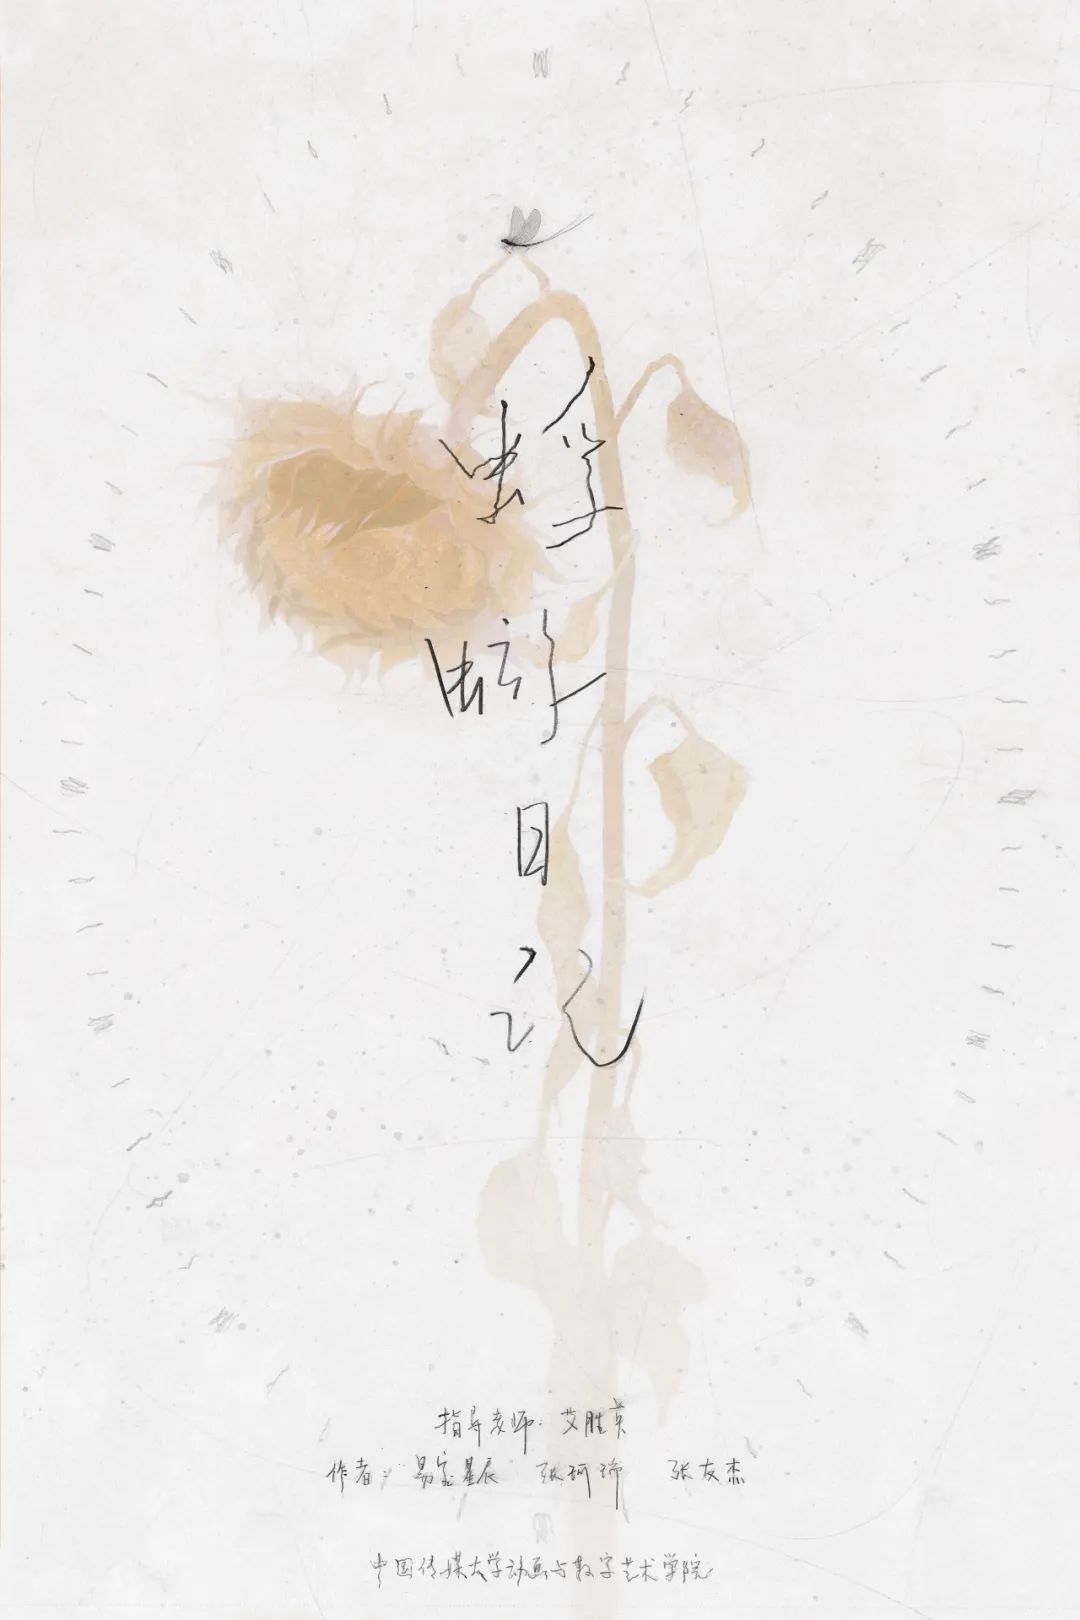 蜉蝣日记
指导老师:艾胜英
作者:易宝星辰 张珂瑞 张友杰
中国传媒大学动画与数字艺术学院